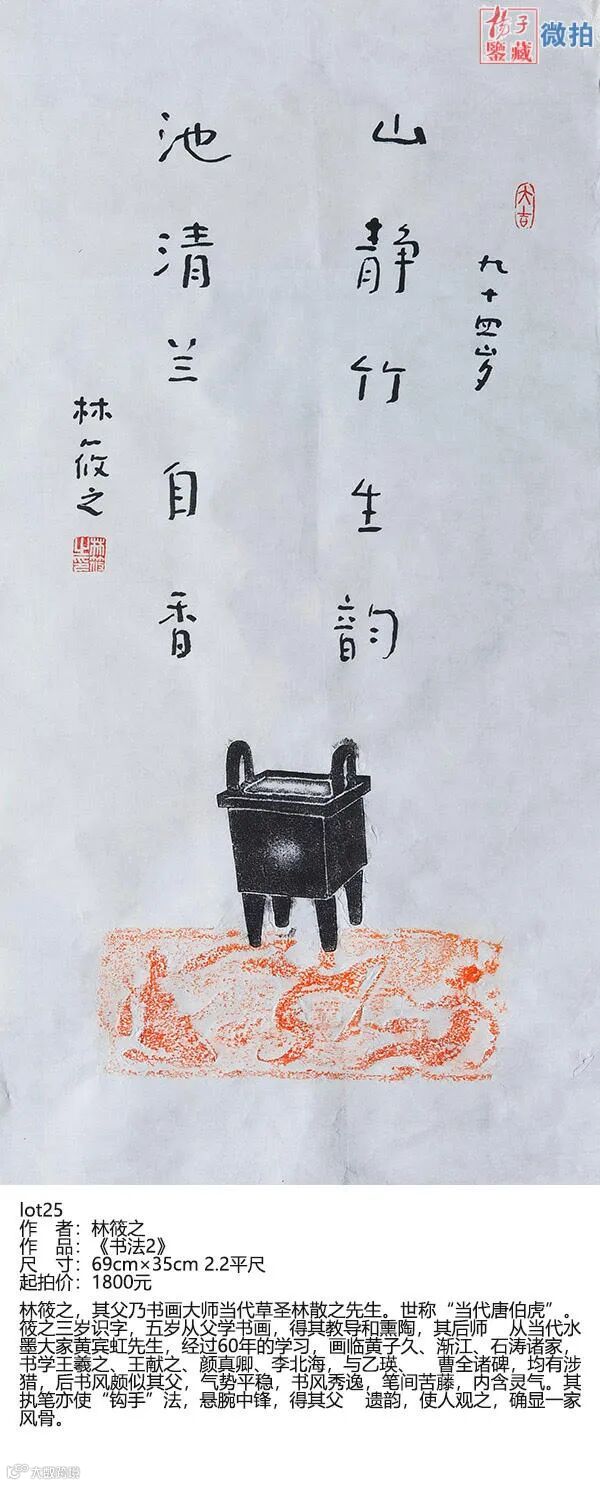 杨子
鉴藏
微拍
大吉
九十四岁
山静竹生韵
池清兰自香
林筱之
林筱之印
lot25
作 者：林筱之
作 品：《书法2》
尺 寸：69cm×35cm 2.2平尺
起拍价：1800元
林筱之，其父乃书画大师当代草圣林散之先生。世称“当代唐伯虎”。
筱之三岁识字，五岁从父学书画，得其教导和熏陶，其后师 从当代水
墨大家黄宾虹先生，经过60年的学习，画临黄子久、渐江、石涛诸家，
书学王羲之、王献之、颜真卿、李北海，与乙瑛、 曹全诸碑，均有涉
猎，后书风颇似其父，气势平稳，书风秀逸，笔间苦藤，内含灵气。其
执笔亦使“钩手”法，悬腕中锋，得其父 遗韵，使人观之，确显一家
风骨。